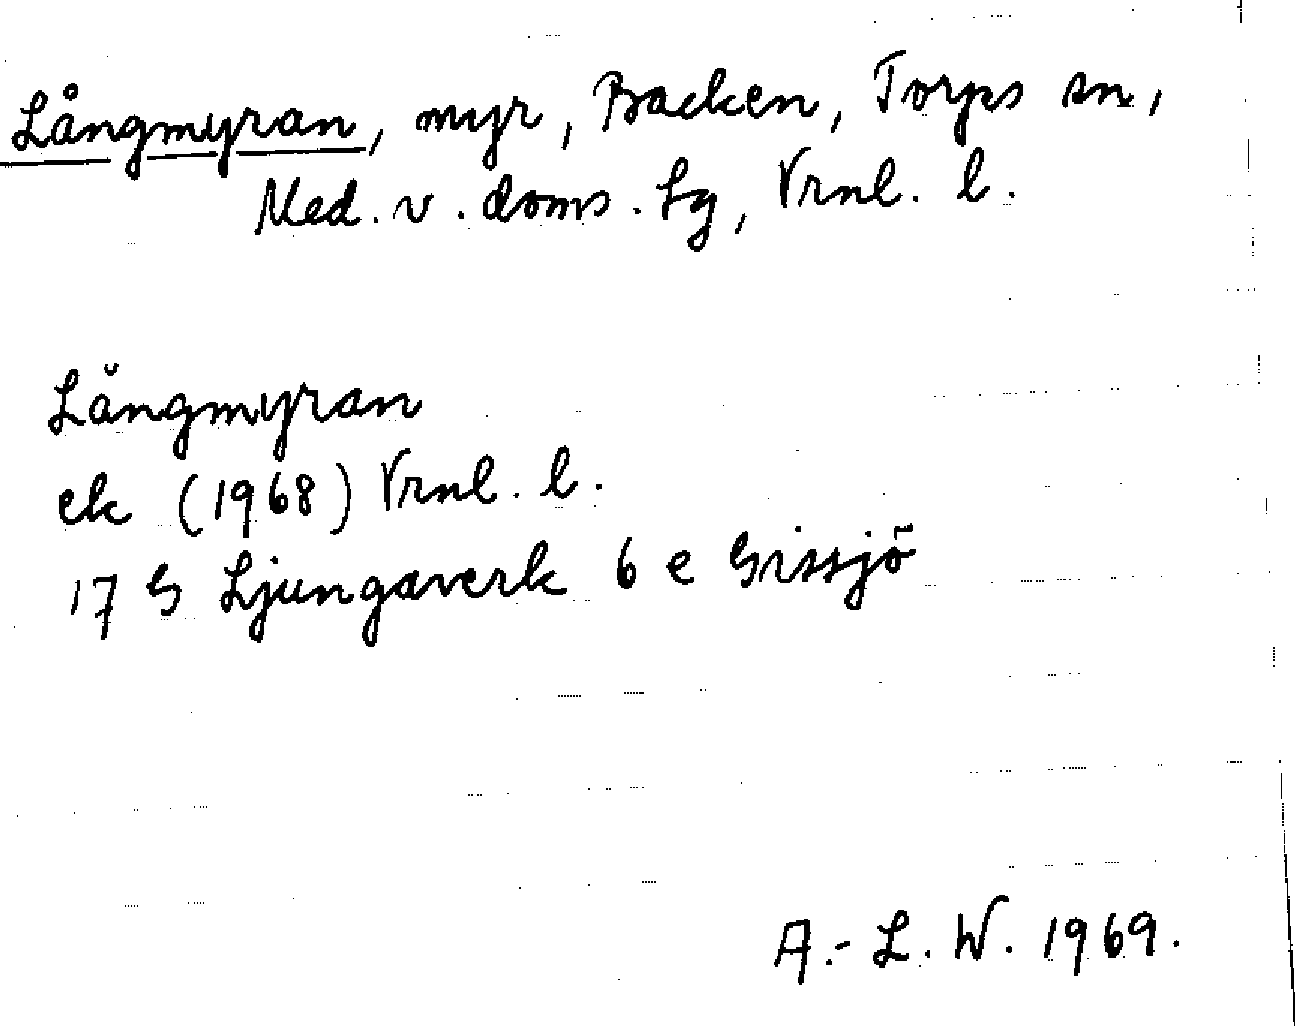 Långmyran, myr, Backen, Torps sn,
Med. v. doms. tg, Vrnl. l.
Långmyran
ek (1968) Vrnl. l.
17 G Ljungaverk 6 e Gissjö
A.-L. W. 1969.